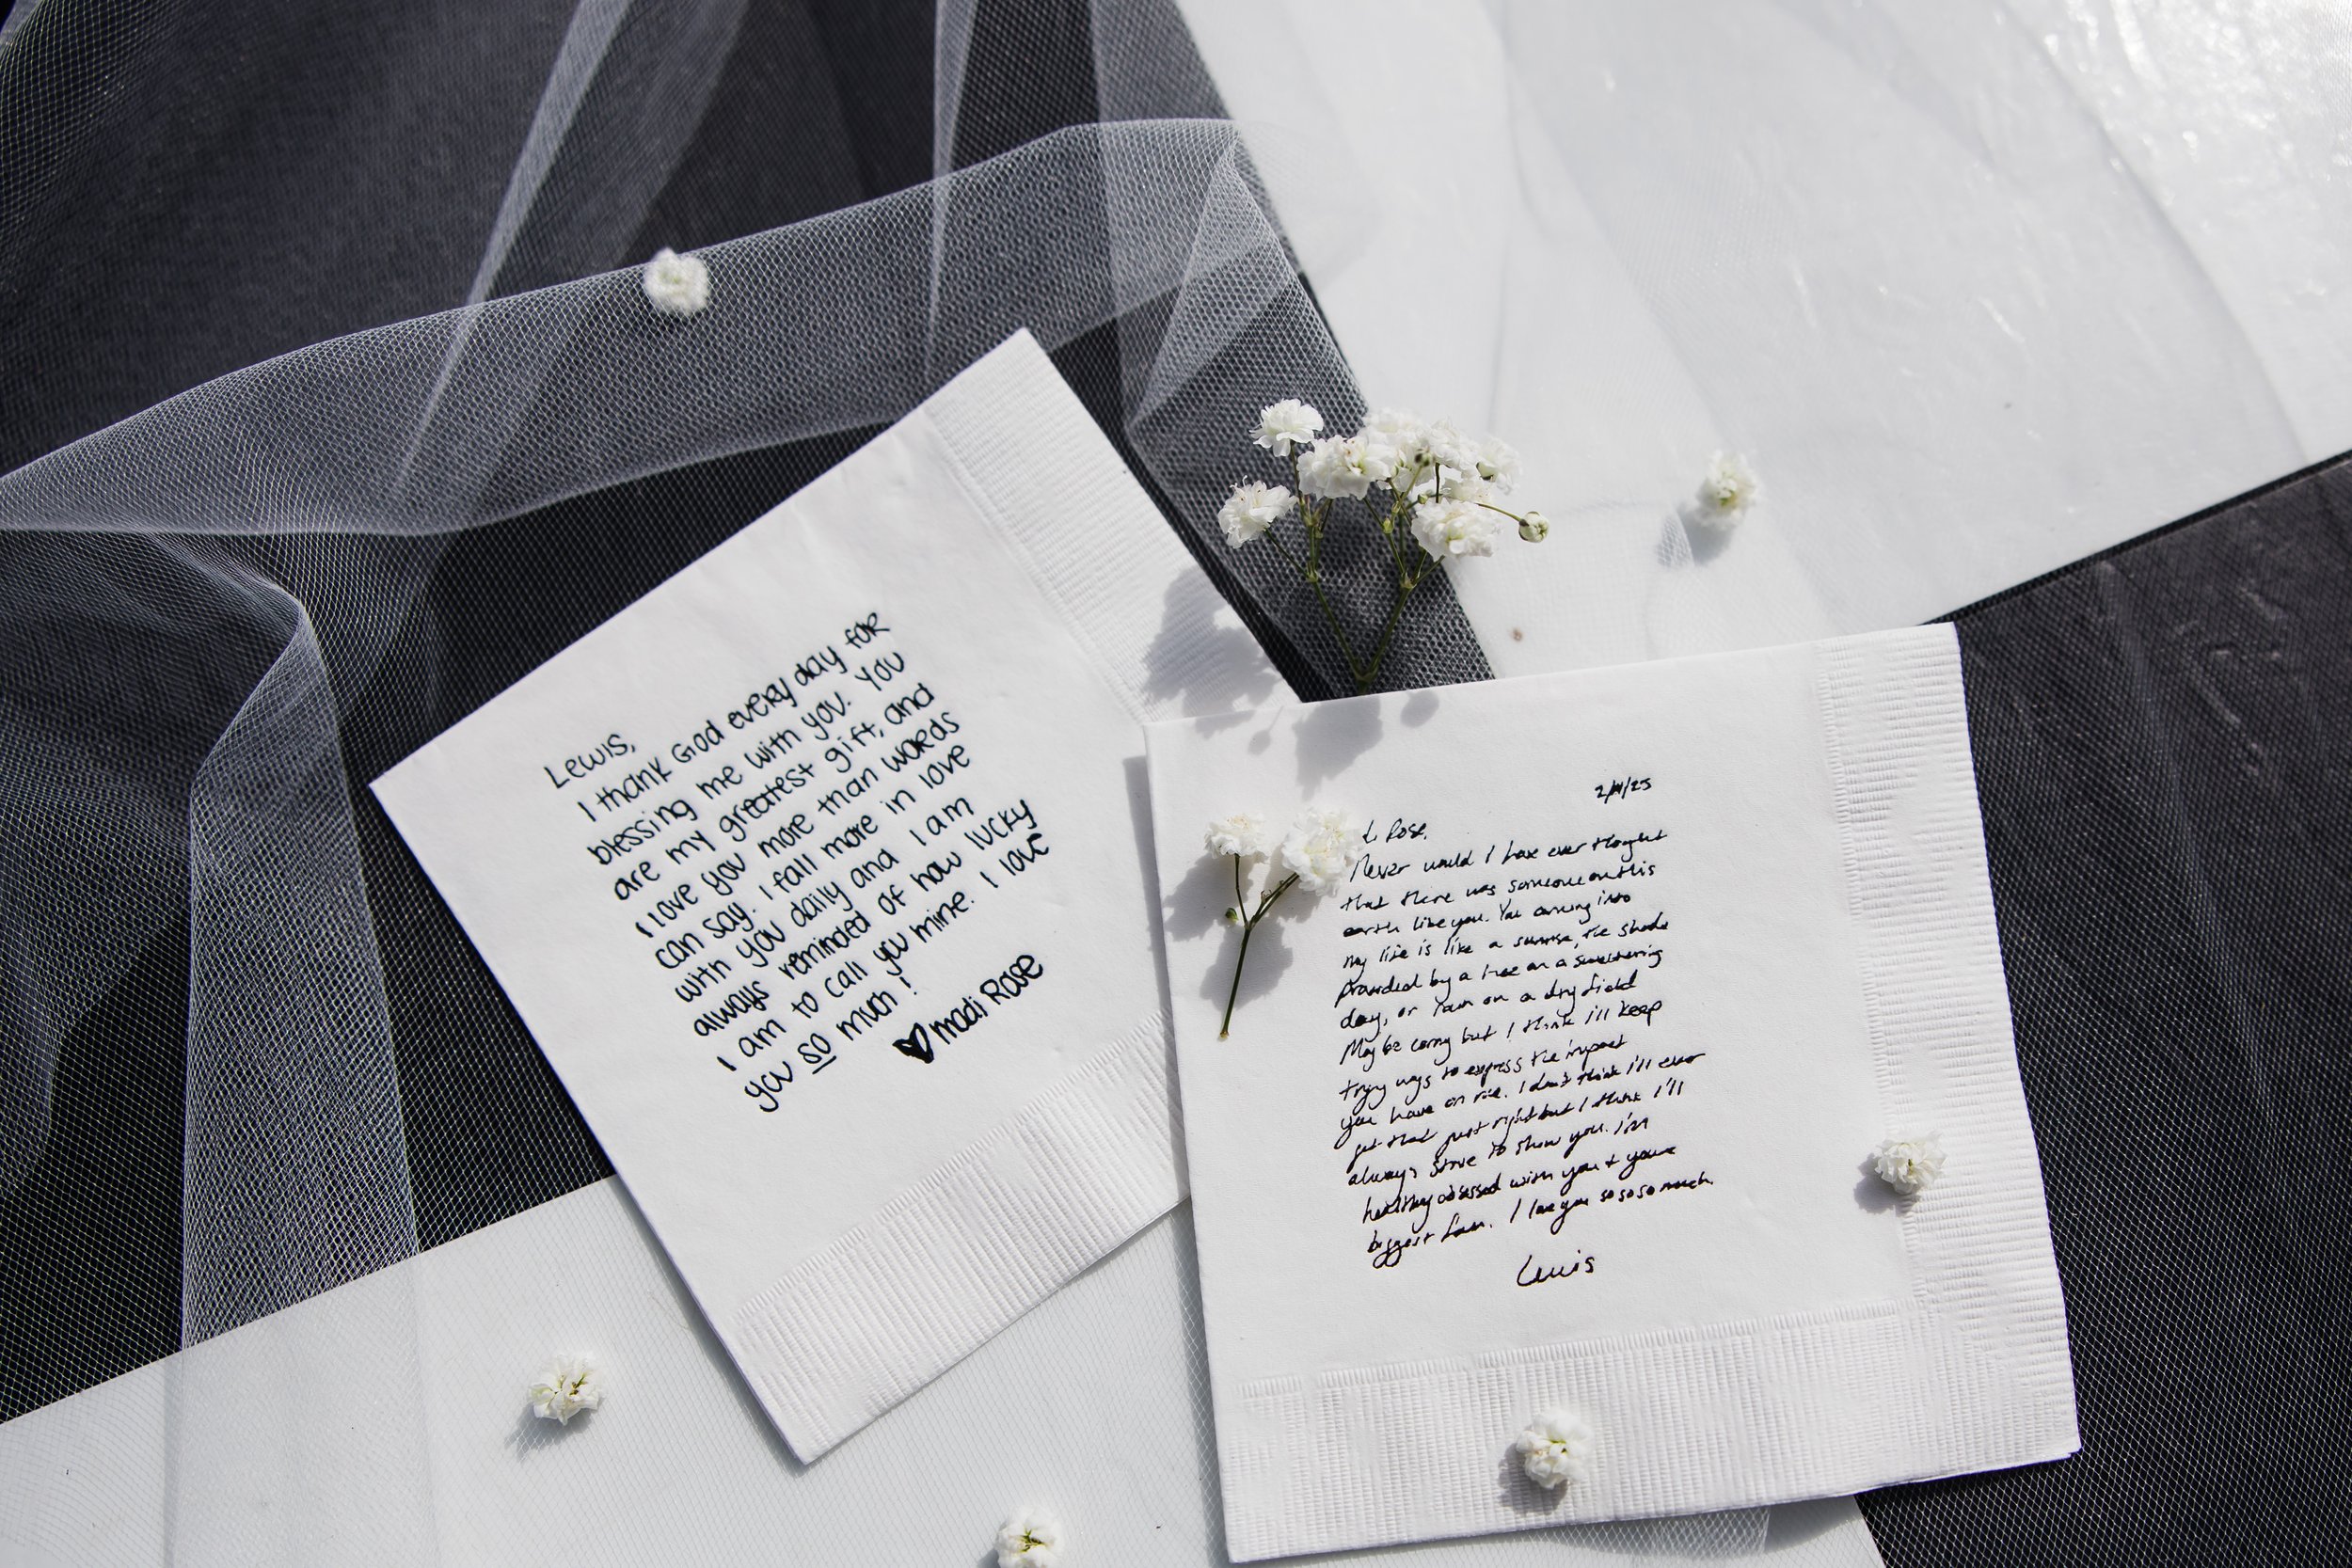 Lewis,
I thank God every day for
blessing me with you. You
are my greatest gift, and
I love you more than words
can say. I fall more in love
with you daily and I am
always reminded of how lucky
I am to call you mine. I love
you so much!
♥ Madi Rose
2/11/25
Rose,
Never would I have ever thought
that there was someone on this
earth like you. You coming into
my life is like a sunrise, the shade
provided by a tree on a sweltering
day, or rain on a dry field
May be corny but I think i'll keep
trying ways to express the impact
you have on me. I don't think i'll ever
get that just right but I think i'll
always strive to show you. i'm
healthy obsessed with you + your
biggest fan. I love you so so so much.
Lewis